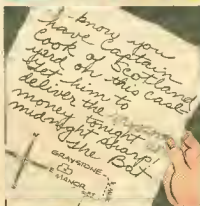 know you
have Captain
Cook of Scotland
yard on this case
Get him to
deliver the
money tonight
midnight sharp!
The Bat
GRAYSTONE
MANOR